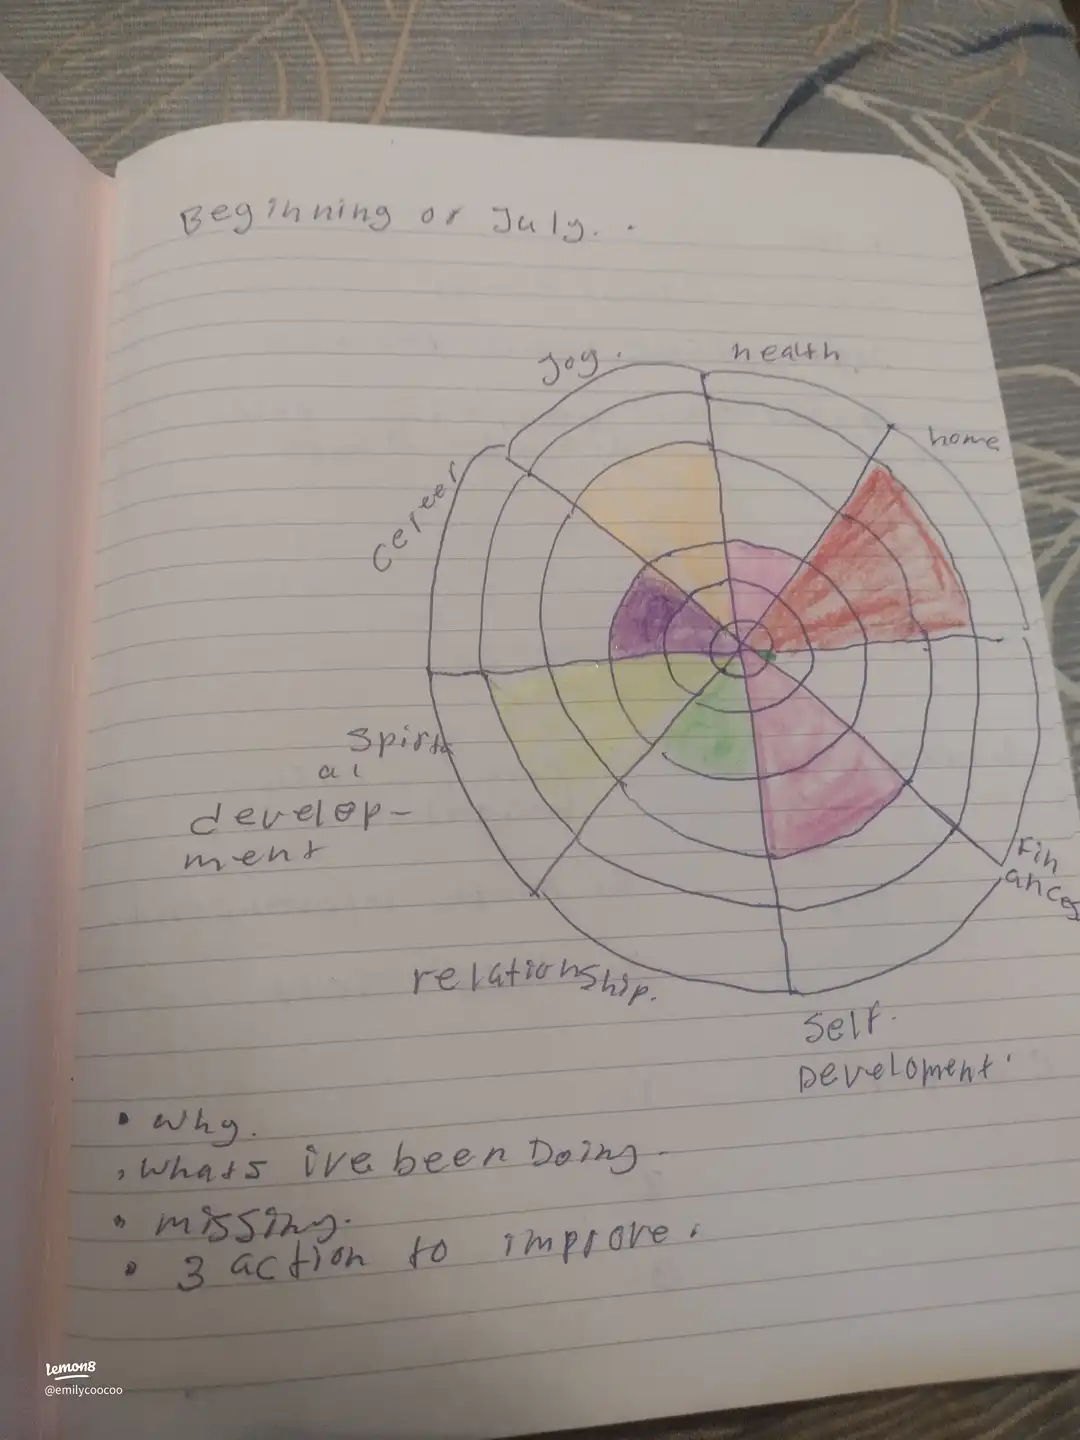 Beginning of July. .
joy.
health
home
cereer
spirtu
al
develop-
ment
Fin
ances
relationship.
self.
Development.
• why.
• whats ive been Doing.
• missing.
• 3 action to improve.
lemon8
@emilycoocoo